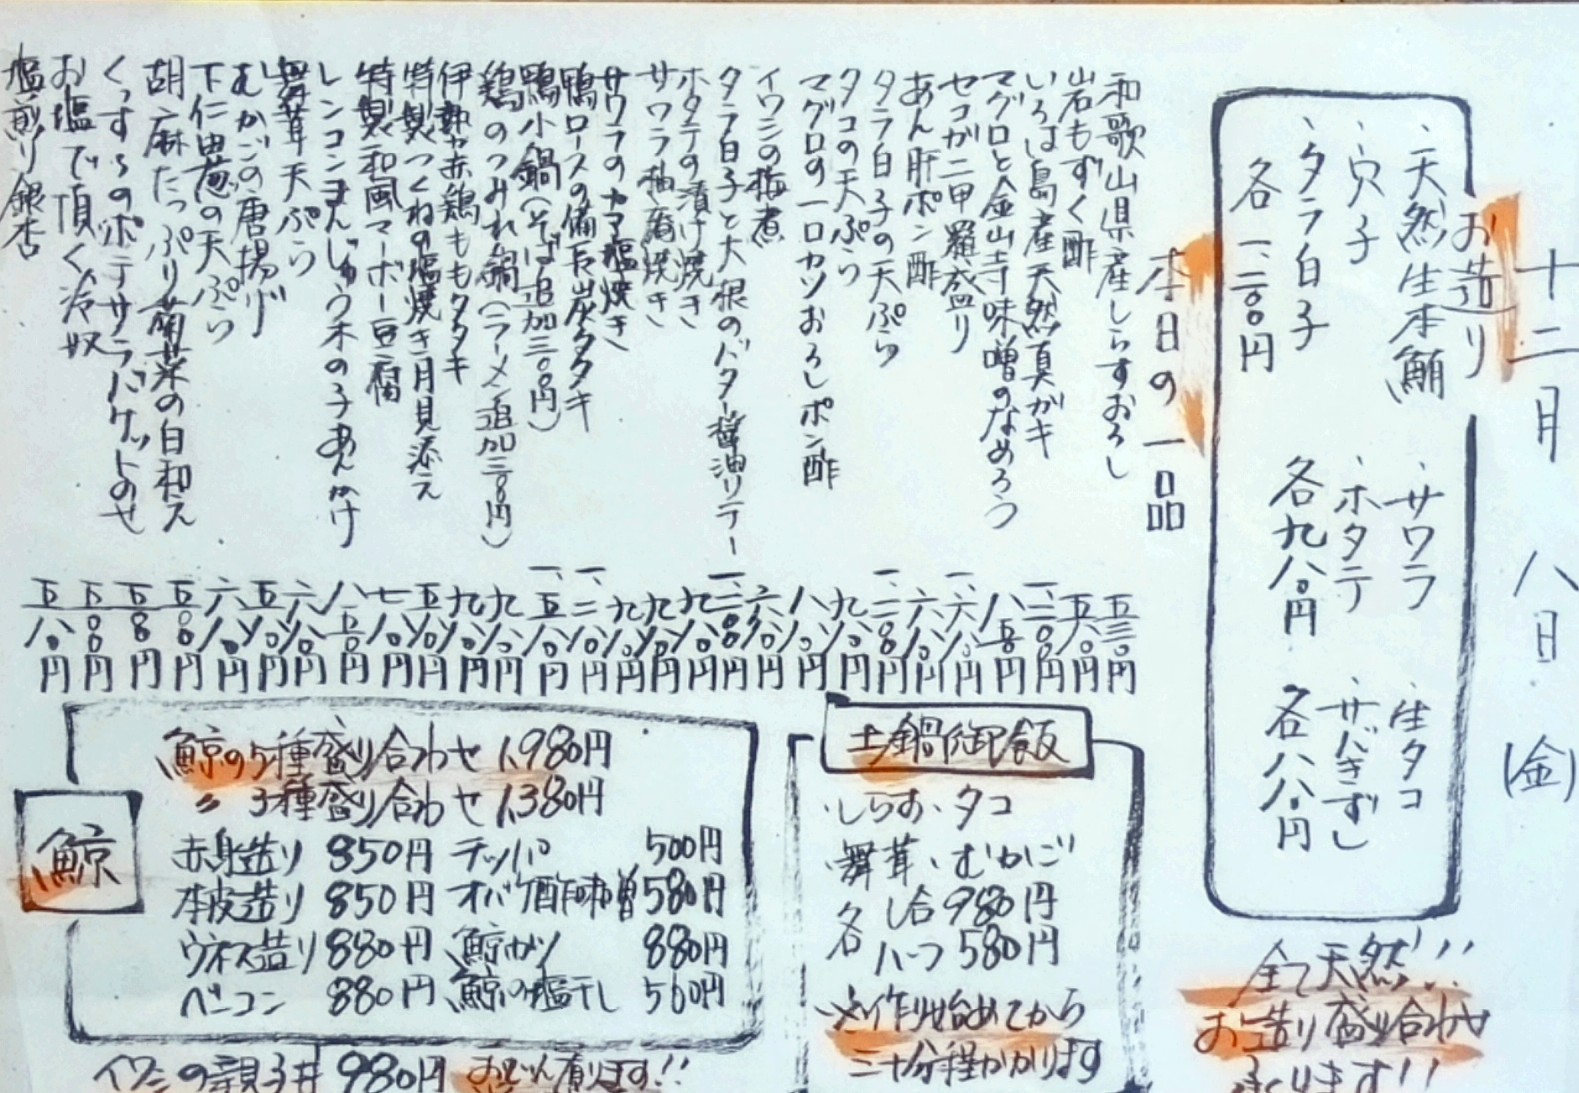 十二月 八日 (金)
お造り
、天然生本鮪 、サワラ 、生タコ
、穴子 、ホタテ 、サバきずし
、タラ白子 各九八〇円 各八八〇円
各一、二八〇円
全て天然!!
お造り盛り合わせ
承ります!!
本日の一品
和歌山県産しらすおろし 五三〇円
岩もずく酢 五八〇円
いろは島産天然真ガキ 一、二〇〇円
マグロと金山寺味噌のなめろう 八五〇円
セコガニ甲羅盛り 一、六八〇円
あん肝ポン酢 六八〇円
タラ白子の天ぷら 一、二八〇円
タコの天ぷら 九八〇円
マグロの一口カツおろしポン酢 八八〇円
イワシの梅煮 六八〇円
タラ白子と大根のバター醤油ソテー 一、二八〇円
ホタテの漬け焼き 九八〇円
サワラ柚庵焼き 九八〇円
サワラのカマ塩焼き 九八〇円
鴨ロースの備長炭タタキ 一、二八〇円
鴨小鍋(そば追加三〇〇円) 一、五八〇円
鶏のつみれ鍋(ラーメン追加三〇〇円) 九八〇円
伊勢赤鶏ももタタキ 九八〇円
特製つくねの塩焼き月見添え 五八〇円
特製和風マーボー豆腐 七八〇円
レンコンまんじゅう木の子あんかけ 八五〇円
舞茸天ぷら 六八〇円
むかごの唐揚げ 五八〇円
下仁田葱の天ぷら 六八〇円
胡麻たっぷり菊菜の白和え 五八〇円
くっするのポテサラバケットのせ 五八〇円
お塩で頂く冷奴 五〇〇円
塩煎り銀杏 五八〇円
土鍋御飯
・しらす、タコ
舞茸、むかご
各 一合 980円
ハーフ 580円
※作り始めてから
三十分程かかります
鯨
鯨の5種盛り合わせ 1,980円
〃 3種盛り合わせ 1,380円
赤身造り 850円 テッパ 500円
本皮造り 850円 オバケ酢味噌 580円
ウネス造り 880円 鯨カツ 880円
ベーコン 880円 鯨の塩干し 560円
イワシの親子丼 980円 おでん有ります!!